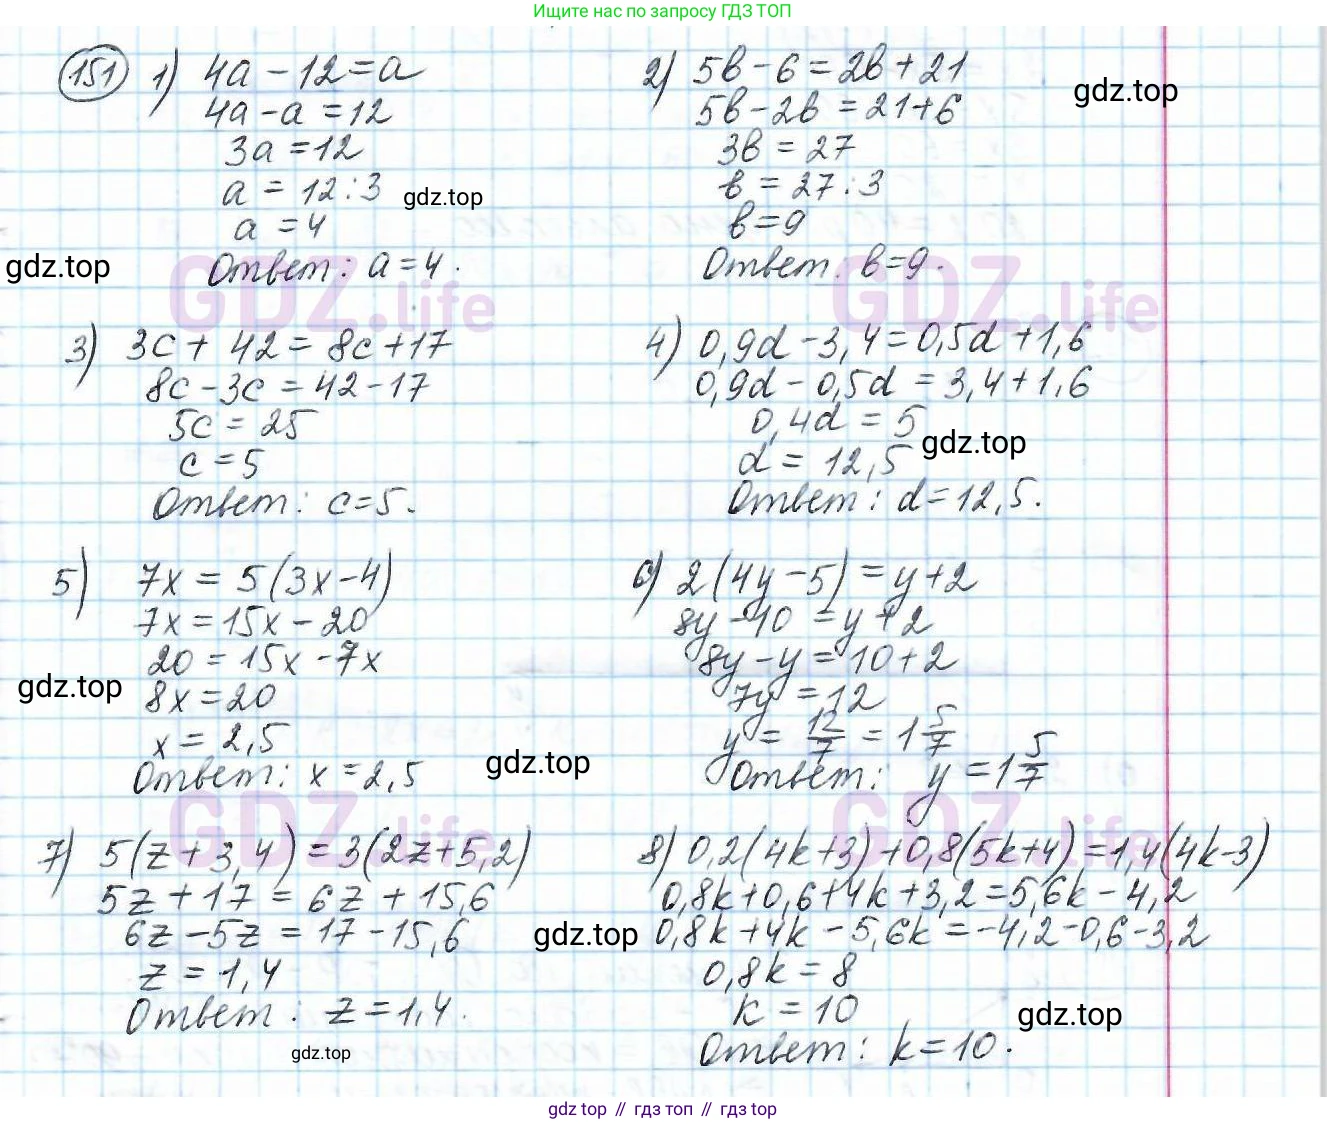 Ищите нас по запросу ГДЗ ТОП
151 1) 4a - 12 = a
4a - a = 12
3a = 12
a = 12 : 3
a = 4
Ответ: a = 4.
2) 5в - 6 = 2в + 21
5в - 2в = 21 + 6
3в = 27
в = 27 : 3
в = 9
Ответ: в = 9.
gdz.top
gdz.top
gdz.top
GDZ.life
GDZ.life
3) 3c + 42 = 8c + 17
8c - 3c = 42 - 17
5c = 25
c = 5
Ответ: c = 5.
4) 0,9d - 3,4 = 0,5d + 1,6
0,9d - 0,5d = 3,4 + 1,6
0,4d = 5
d = 12,5
Ответ: d = 12,5.
gdz.top
5) 7x = 5(3x - 4)
7x = 15x - 20
20 = 15x - 7x
8x = 20
x = 2,5
Ответ: x = 2,5
6) 2(4y - 5) = y + 2
8y - 10 = y + 2
8y - y = 10 + 2
7y = 12
y = 12/7 = 1 5/7
Ответ: y = 1 5/7
gdz.top
gdz.top
GDZ.life
GDZ.life
7) 5(z + 3,4) = 3(2z + 5,2)
5z + 17 = 6z + 15,6
6z - 5z = 17 - 15,6
z = 1,4
Ответ: z = 1,4.
8) 0,2(4k + 3) + 0,8(5k + 4) = 1,4(4k - 3)
0,8k + 0,6 + 4k + 3,2 = 5,6k - 4,2
0,8k + 4k - 5,6k = -4,2 - 0,6 - 3,2
0,8k = 8
k = 10
Ответ: k = 10.
gdz.top
gdz.top
gdz.top
gdz.top // гдз топ // гдз top